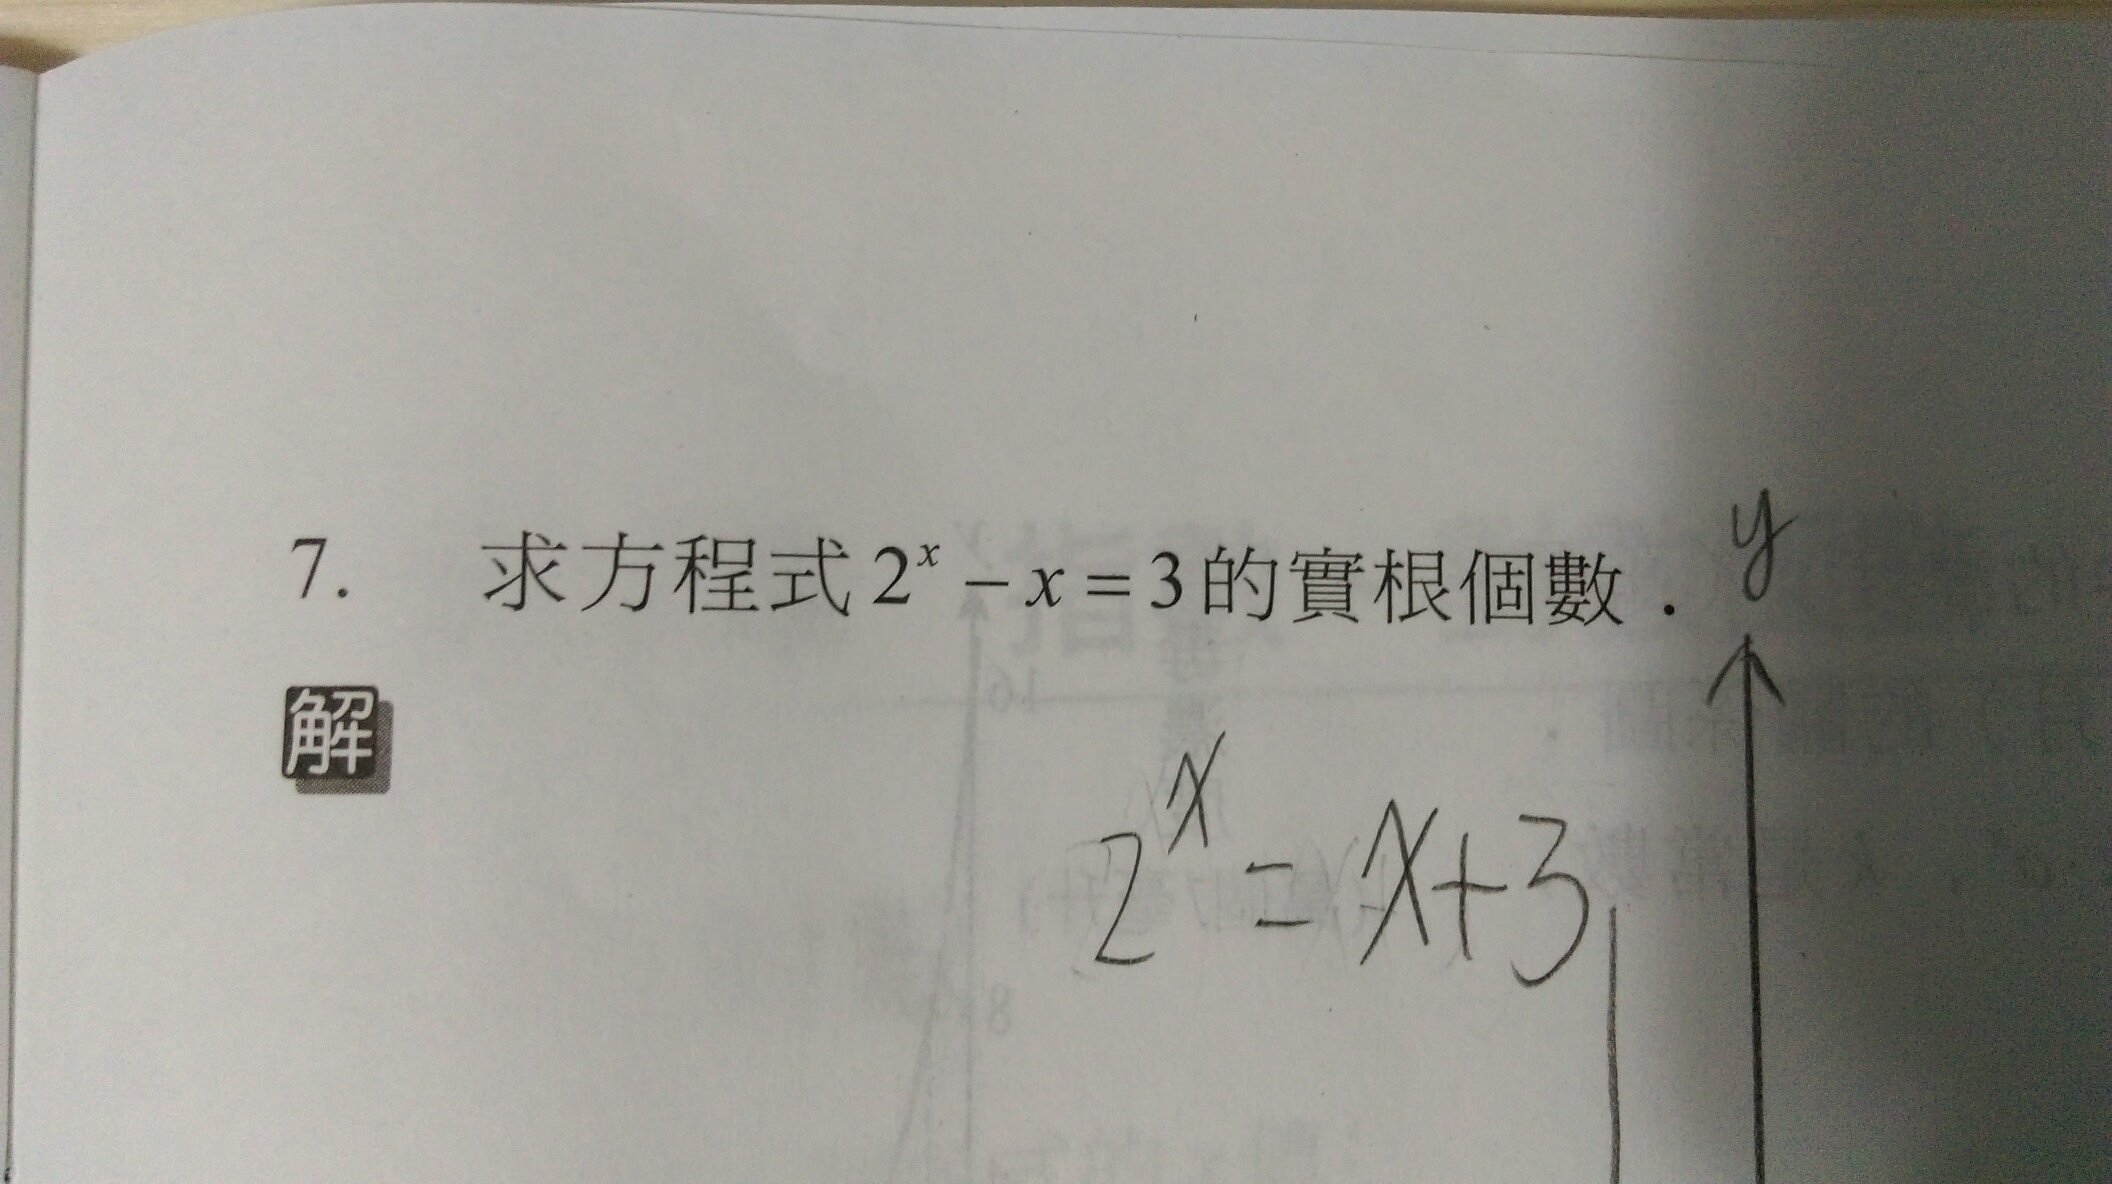 7. 求方程式 2ˣ − x = 3 的實根個數．
y
解
2ˣ = x + 3